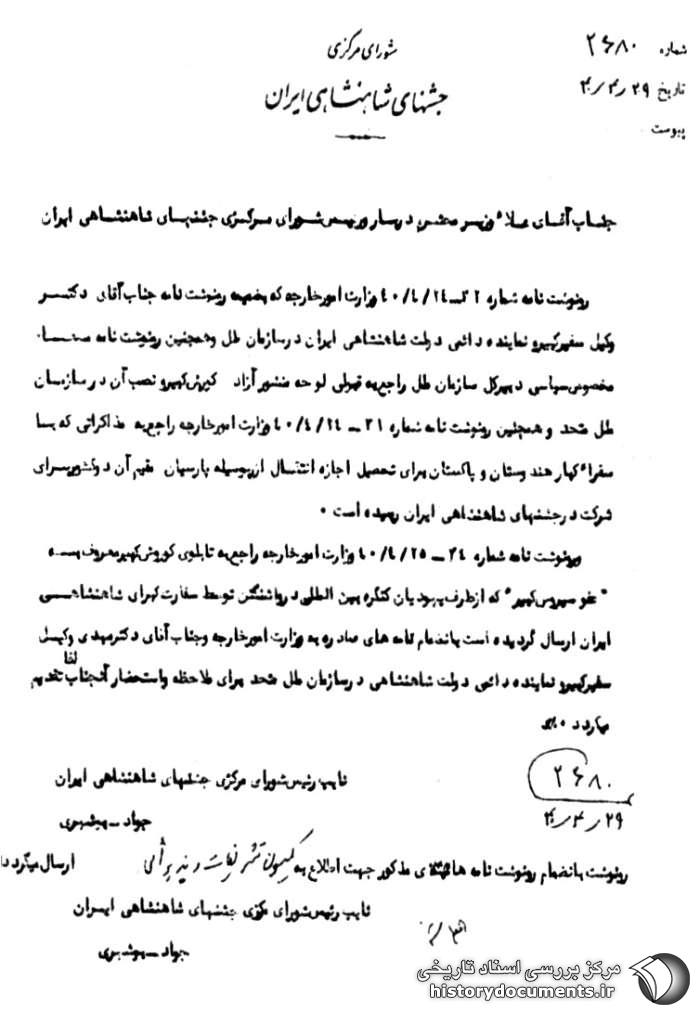 شماره ۲۶۸۰
تاریخ ۲۹ر۴ر۴۰
پیوست
شورای مرکزی
جشنهای شاهنشاهی ایران
جناب آقای علاء وزیر محترم دربار و رئیس شورای مرکزی جشنهای شاهنشاهی ایران
رونوشت نامه شماره ۳۲ــ۴۰/۴/۲۴ وزارت امورخارجه که بضمیمه رونوشت نامه جناب آقای دکتر
وکیل سفیرکبیر و نماینده دائمی دولت شاهنشاهی ایران در سازمان ملل وهمچنین رونوشت نامه
مخصوص سیاسی دبیرکل سازمان ملل راجع به قبولی لوحه منشور آزاد کورش کبیر و نصب آن در سازمان
ملل متحد و همچنین رونوشت نامه شماره ۳۱ ــ ۴۰/۴/۲۴ وزارت امورخارجه راجع به مذاکراتی که با
سفراء کبار هندوستان و پاکستان برای تحصیل اجازه انتقال ارز بوسیله پارسیان مقیم آن دو کشور برای
شرکت در جشنهای شاهنشاهی ایران رسیده است ۰
ورونوشت نامه شماره ۳۴ ــ ۴۰/۴/۲۵ وزارت امورخارجه راجع به تابلوی کوروش کبیر معروف به
" عفو سیروس کبیر " که ازطرف یهودیان کنگره بین المللی در واشنگتن توسط سفارت کبرای شاهنشاهی
ایران ارسال گردیده است بانضمام نامه های صادره به وزارت امورخارجه وجناب آقای دکتر مهدی وکیل
سفیرکبیر و نماینده دائمی دولت شاهنشاهی در سازمان ملل متحد برای ملاحظه واستحضار آنجناب لفا تقدیم
میدارد ۰
نایب رئیس شورای مرکزی جشنهای شاهنشاهی ایران
جواد ــ بوشهری
۲۶۸۰
۲۹ر۴ر۴۰
رونوشت بانضمام رونوشت نامه های مذکور جهت اطلاع به کمیسیون تشریفات و پذیرائی ارسال میگردد
نایب رئیس شورای مرکزی جشنهای شاهنشاهی ایران
جواد ــ بوشهری
مرکز بررسی اسناد تاریخی
historydocuments.ir